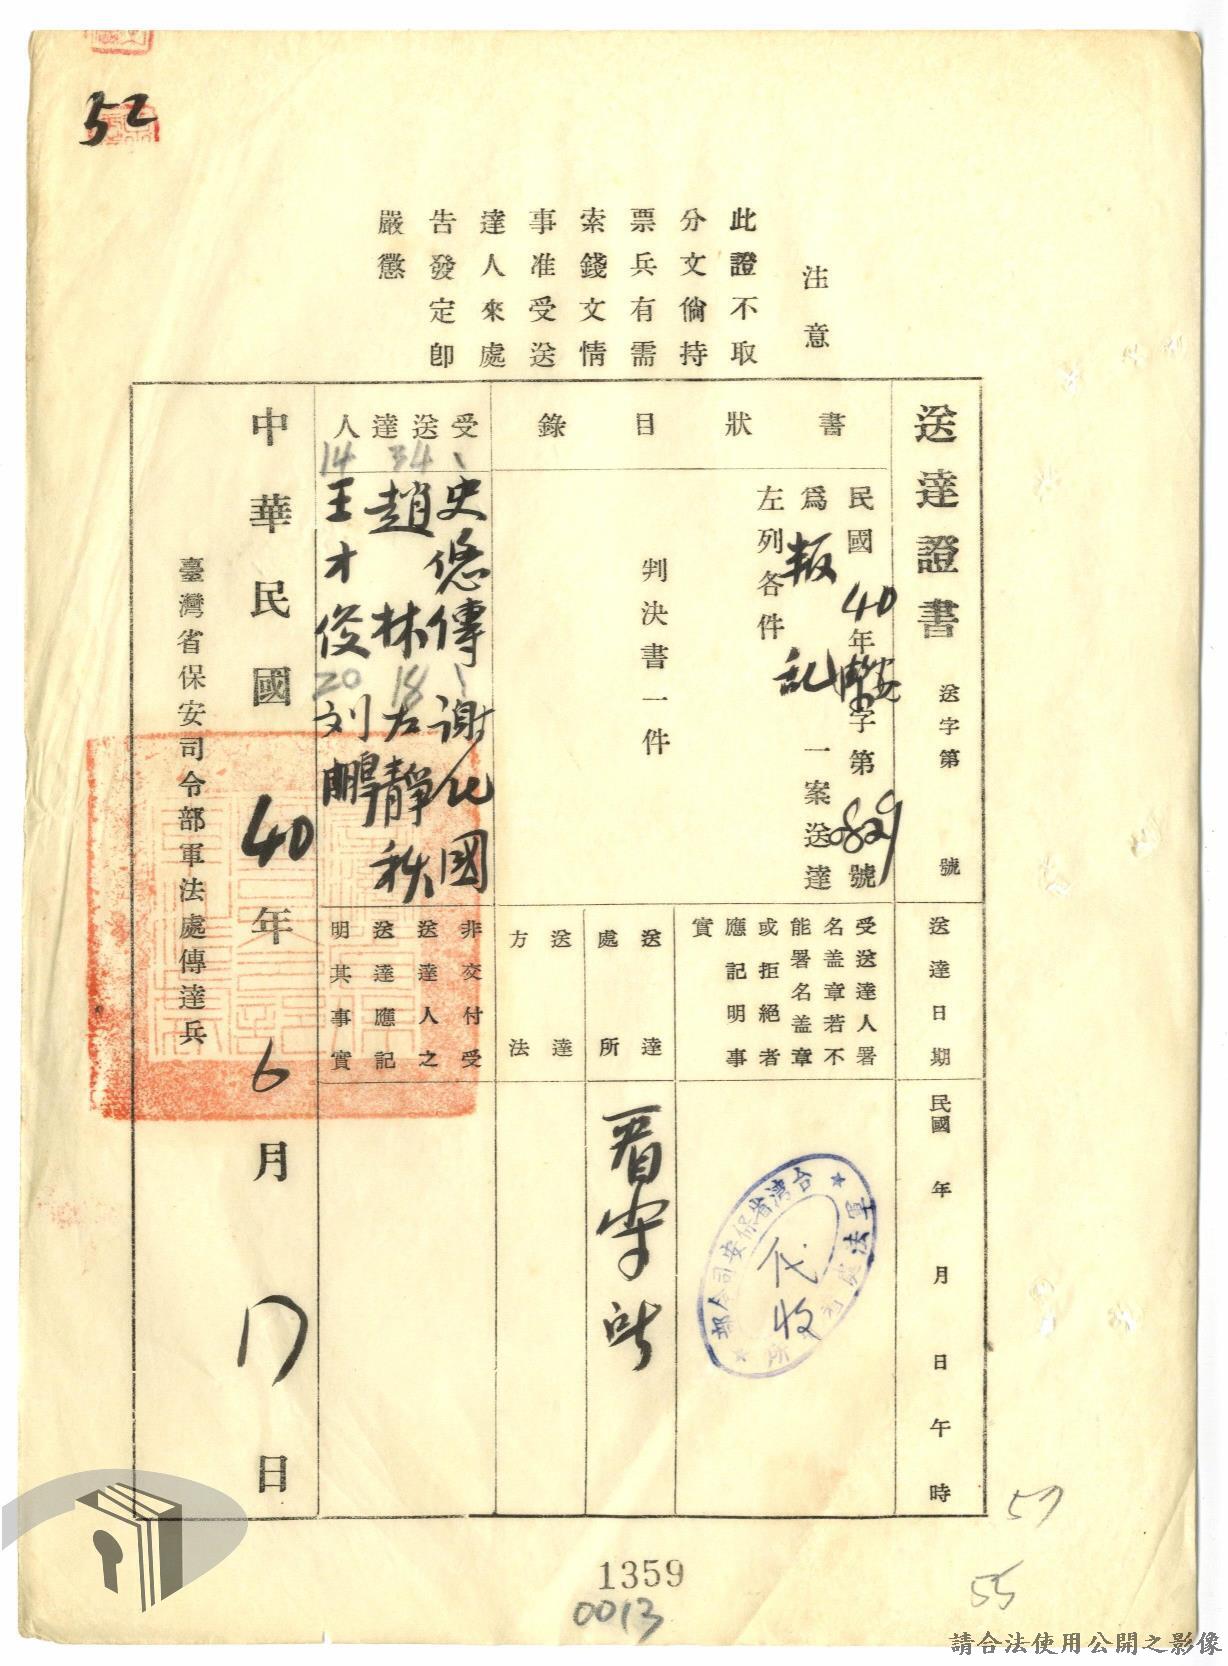 52
注意
此證不取
分文倘持
票兵有需
索錢文情
事准受送
達人來處
告發定即
嚴懲
送達證書
送字第 號
書狀目錄
民國40年安潔字第0829號
為叛亂一案送達
左列各件
判決書一件
受送達人
史悠傳 謝化國
34
趙林
18
左靜秋
14
王才俊
20
刘鵬
送達日期
民國 年 月 日 午 時
受送達人署
名盖章若不
能署名盖章
或拒絕者
應記明事
實
台湾省保安司令部
軍法處
所
代收
送達
處所
看守所
送達
方法
非交付受
送達人之
送達應記
明其事實
中華民國40年6月17日
臺灣省保安司令部軍法處傳達兵
57
55
1359
0013
請合法使用公開之影像